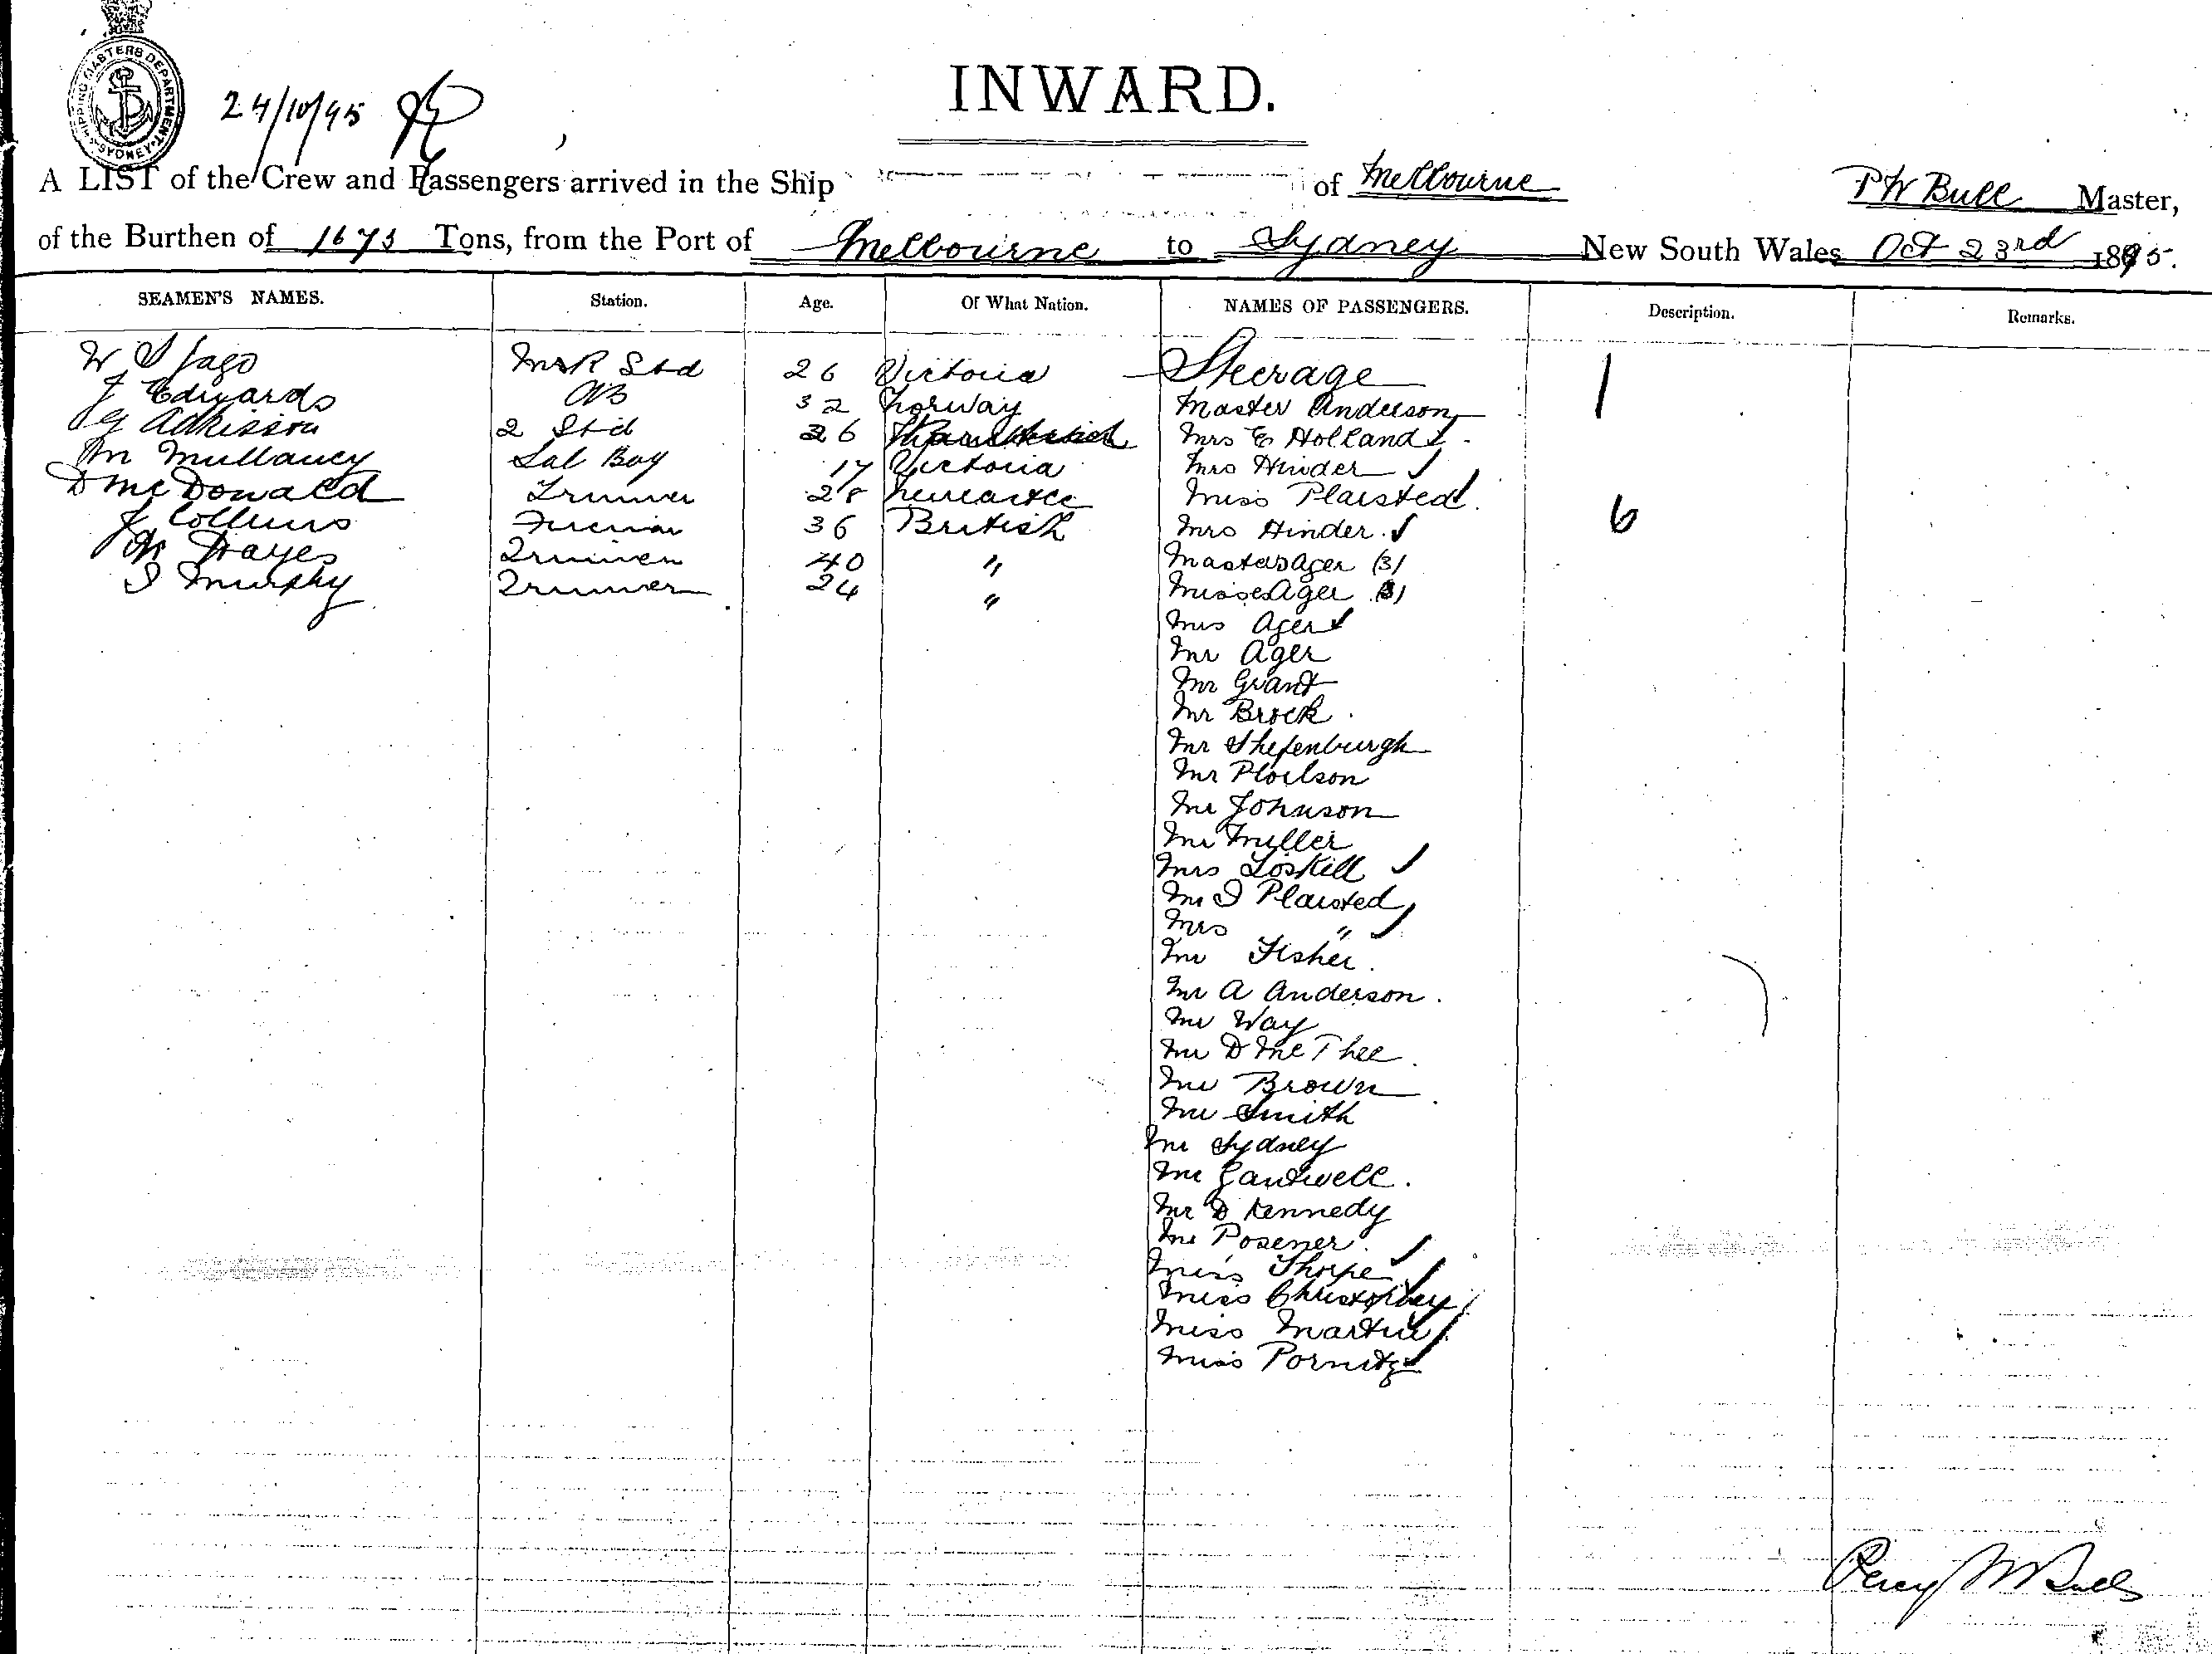 SHIPPING MASTERS DEPARTMENT SYDNEY
24/10/95
INWARD.
A LIST of the Crew and Passengers arrived in the Ship of Melbourne P W Bull Master,
of the Burthen of 1675 Tons, from the Port of Melbourne to Sydney New South Wales Oct 23rd 1895.
SEAMEN'S NAMES. Station. Age. Of What Nation. NAMES OF PASSENGERS. Description. Remarks.
W S Jago M S R Std 26 Victoria Steerage 1
J Edwards AB 32 Norway Master Anderson
G Adkisson 2 Std 26 Mrs E Holland
M Mullancy Sal Boy 17 Victoria Mrs Hinder
D McDonald Trimmer 28 Newcastle Miss Plaisted
J Collins Fireman 36 British Mrs Hinder 6
W Hayes Trimmer 40 " Masters Ager (3)
J Murphy Trimmer 24 " Misses Ager (3)
Mrs Ager
Mr Ager
Mr Grant
Mr Brock
Mr Shefenburgh
Mr Ploilson
Mr Johnson
Mr Muller
Mrs Loskill
Mr J Plaisted
Mrs "
Mr Fisher
Mr A Anderson
Mr Way
Mr D McPhee
Mr Brown
Mr Smith
Mr Sydney
Mr Gantwell
Mr D Kennedy
Mr Posener
Miss Thorpe
Miss
Miss Martin
Miss Pornitz
Percy W Bull